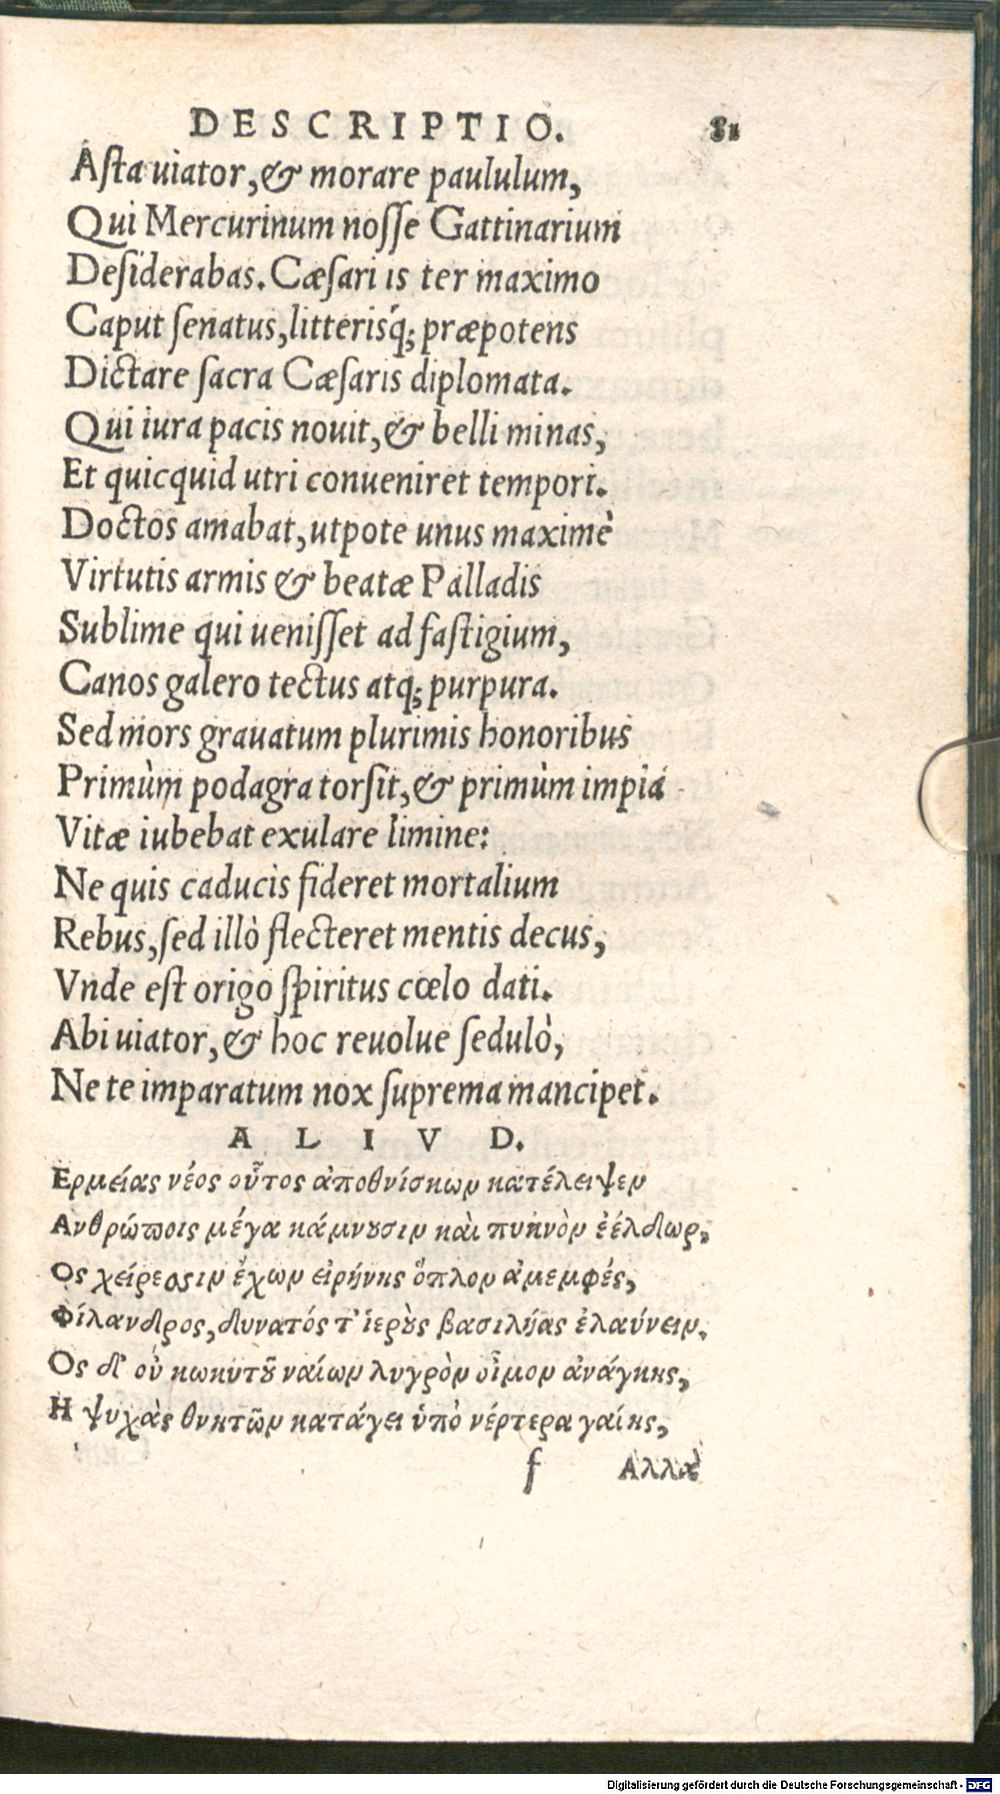 DESCRIPTIO. 81
Asta uiator, & morare paululum,
Qui Mercurinum nosse Gattinarium
Desiderabas. Cæsari is ter maximo
Caput senatus, litterisq́; præpotens
Dictare sacra Cæsaris diplomata.
Qui iura pacis nouit, & belli minas,
Et quicquid utri conueniret tempori.
Doctos amabat, utpote unus maximè
Virtutis armis & beatæ Palladis
Sublime qui uenisset ad fastigium,
Canos galero tectus atq; purpura.
Sed mors grauatum plurimis honoribus
Primùm podagra torsit, & primùm impia
Vitæ iubebat exulare limine:
Ne quis caducis fideret mortalium
Rebus, sed illò flecteret mentis decus,
Vnde est origo spiritus cœlo dati.
Abi uiator, & hoc reuolue sedulò,
Ne te imparatum nox suprema mancipet.
ALIVD.
Ερμείας νέος οὗτος ἀποθνίσκων κατέλειψεν
Ανθρώποις μέγα κάμνουσιν καὶ πυκνὸν ἐέλδωρ.
Ος χείρεσσιν ἔχων εἰρήνης ὅπλον ἀμεμφές,
Φίλανδρος, δυνατός τ' ἱεροὺς βασιλῆας ἐλαύνειν.
Ος δ' οὐ κωκυτοῦ ναίων λυγρὸν οἶμον ἀνάγκης,
Η ψυχὰς θνητῶν κατάγει ὑπὸ νέρτερα γαίης,
f Αλλὰ
Digitalisierung gefördert durch die Deutsche Forschungsgemeinschaft - DFG